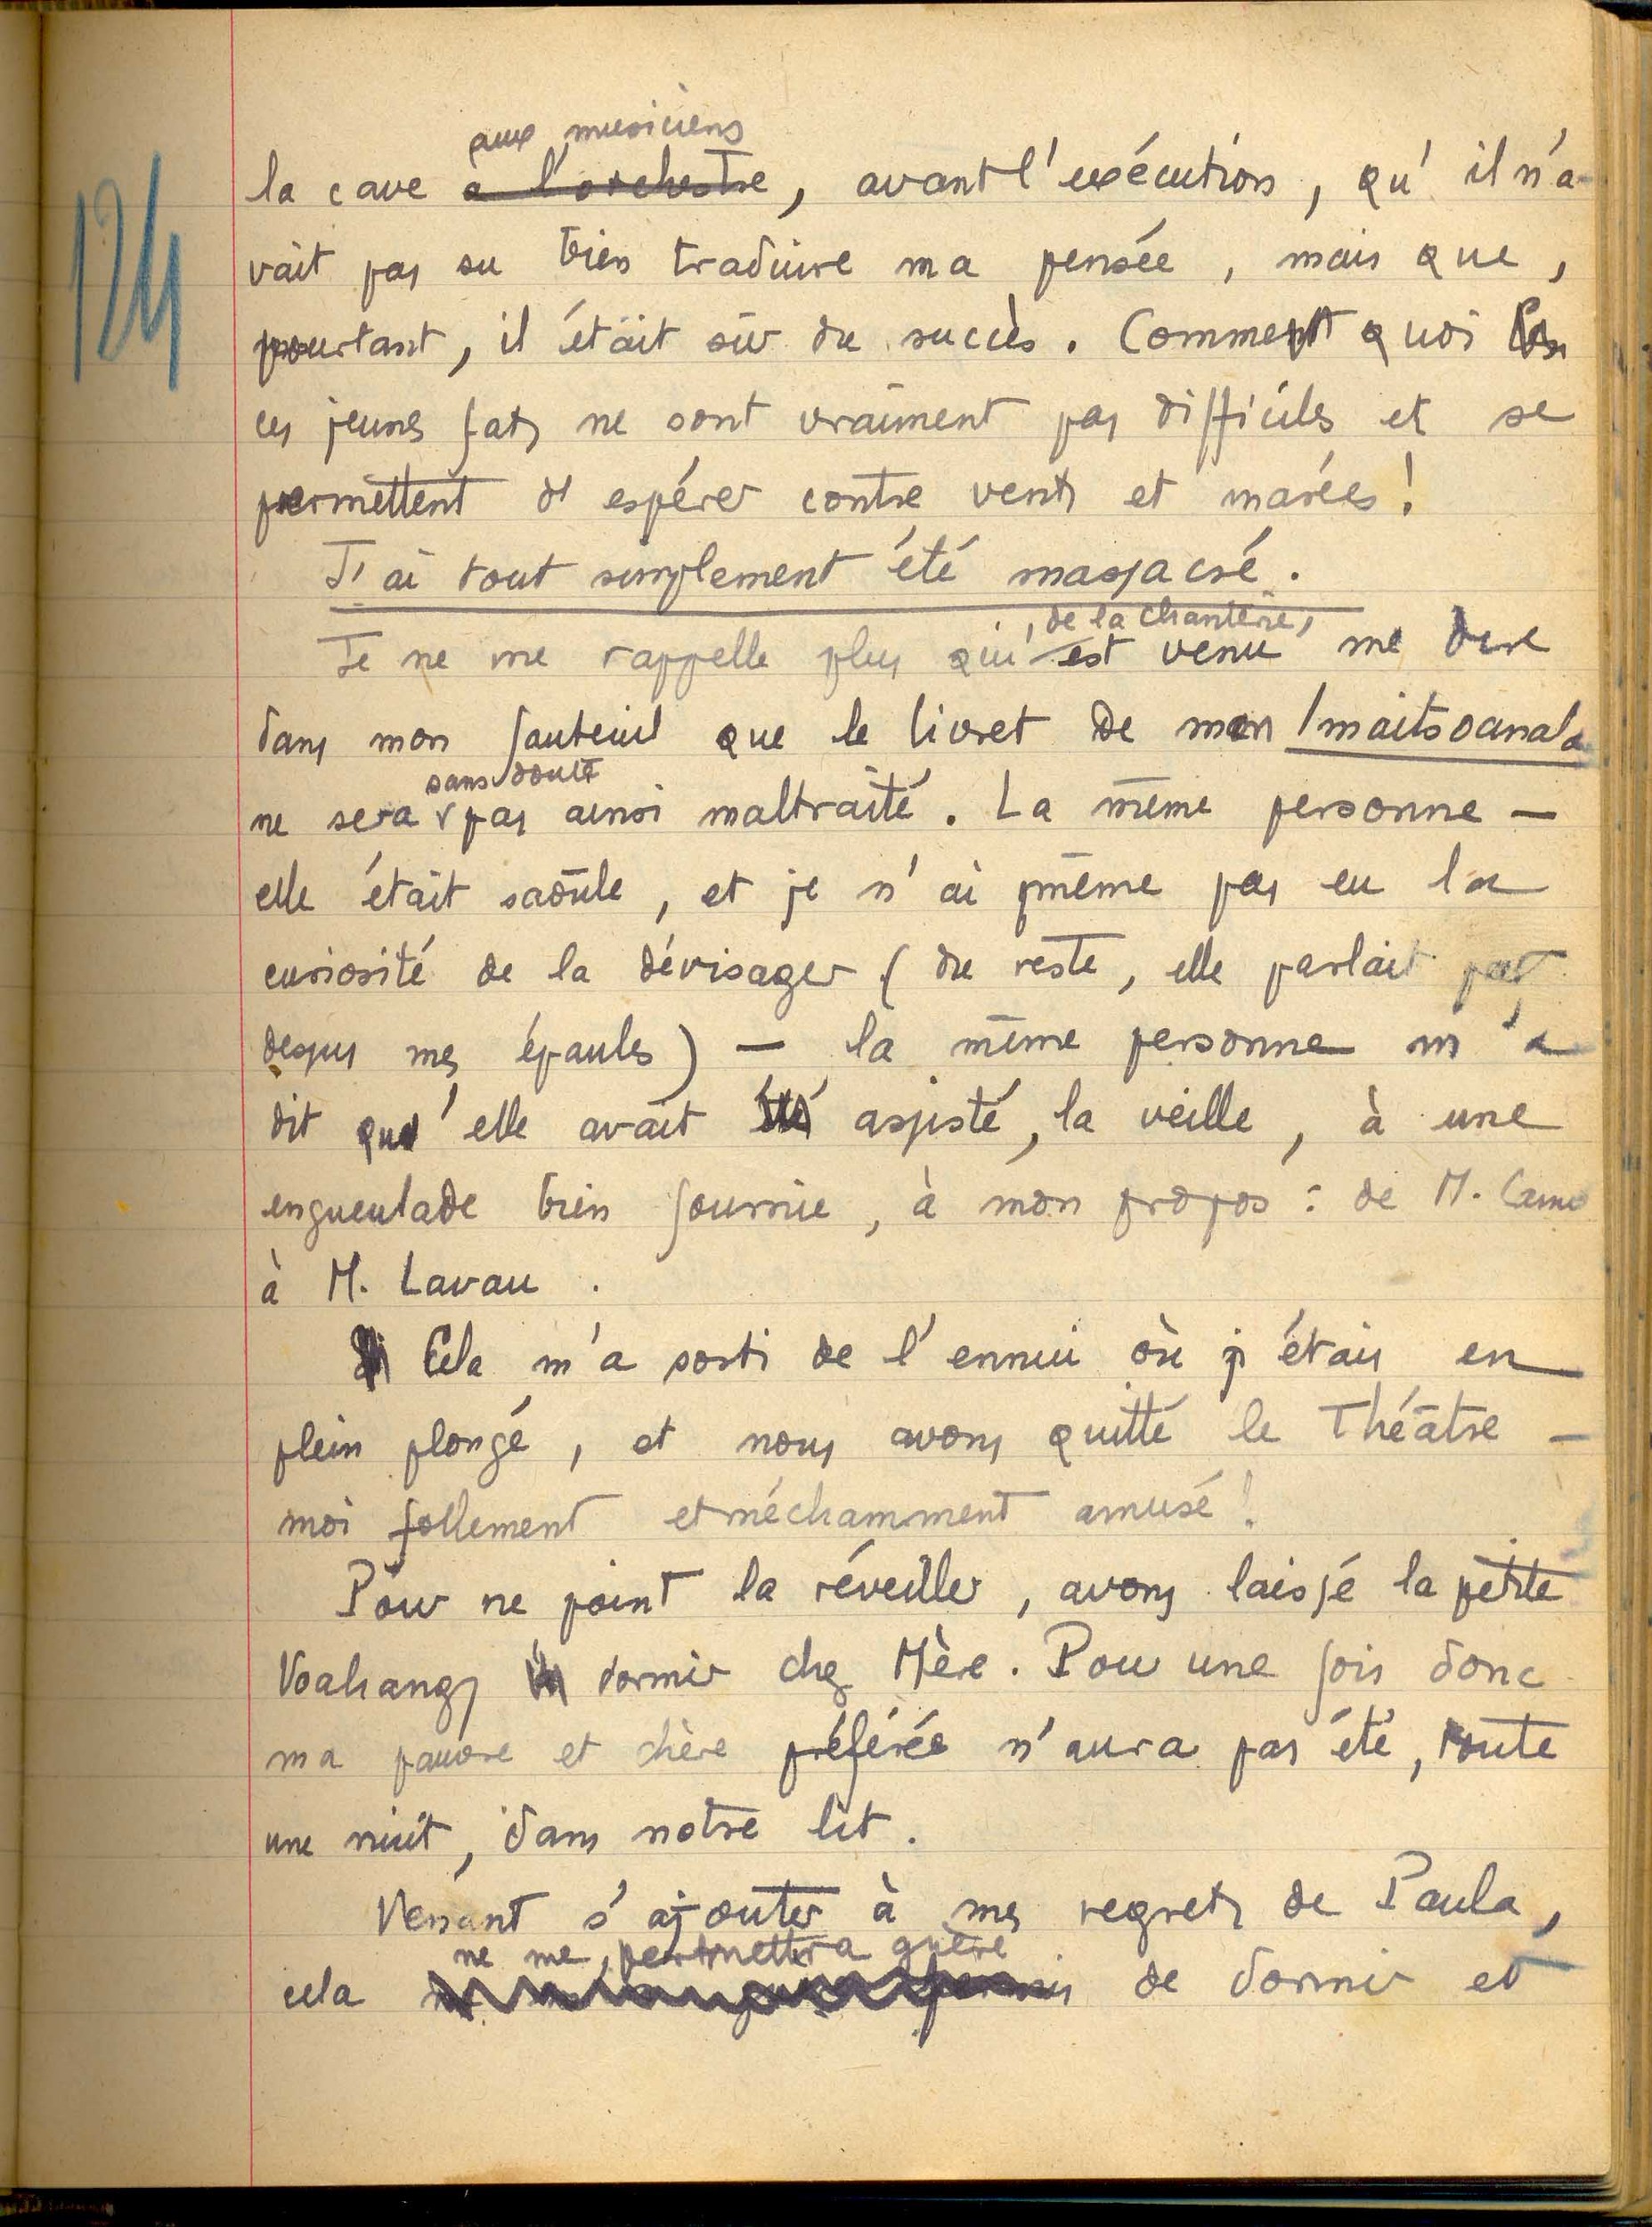 124
aux musiciens
la cave à l'orchestre, avant l'exécution, qu'il n'a-
vait pas su bien traduire ma pensée, mais que,
pourtant, il était sûr du succès. Comment quoi
ces jeunes fats ne sont vraiment pas difficiles et se
permettent d'espérer contre vents et marées!
J'ai tout simplement été massacré.
, de la chanterie,
Je ne me rappelle plus qui est venu me dire
dans mon fauteuil que le livret de mon Imaitsoanala
sans doute
ne sera pas ainsi maltraité. La même personne —
elle était saoûle, et je n'ai même pas eu la
curiosité de la dévisager (du reste, elle parlait par
dessus mes épaules) — la même personne m'a
dit qu'elle avait assisté, la veille, à une
engueulade bien fournie, à mon propos : de M. Camo
à M. Lavau.
Cela m'a sorti de l'ennui où j'étais en
plein plongé, et nous avons quitté le Théâtre —
moi follement et méchamment amusé!
Pour ne point la réveiller, avons laissé la petite
Voahangy dormir chez Mère. Pour une fois donc
ma pauvre et chère préférée n'aura pas été, toute
une nuit, dans notre lit.
Venant s'ajouter à mes regrets de Paula,
ne me permettra guère
cela de dormir et